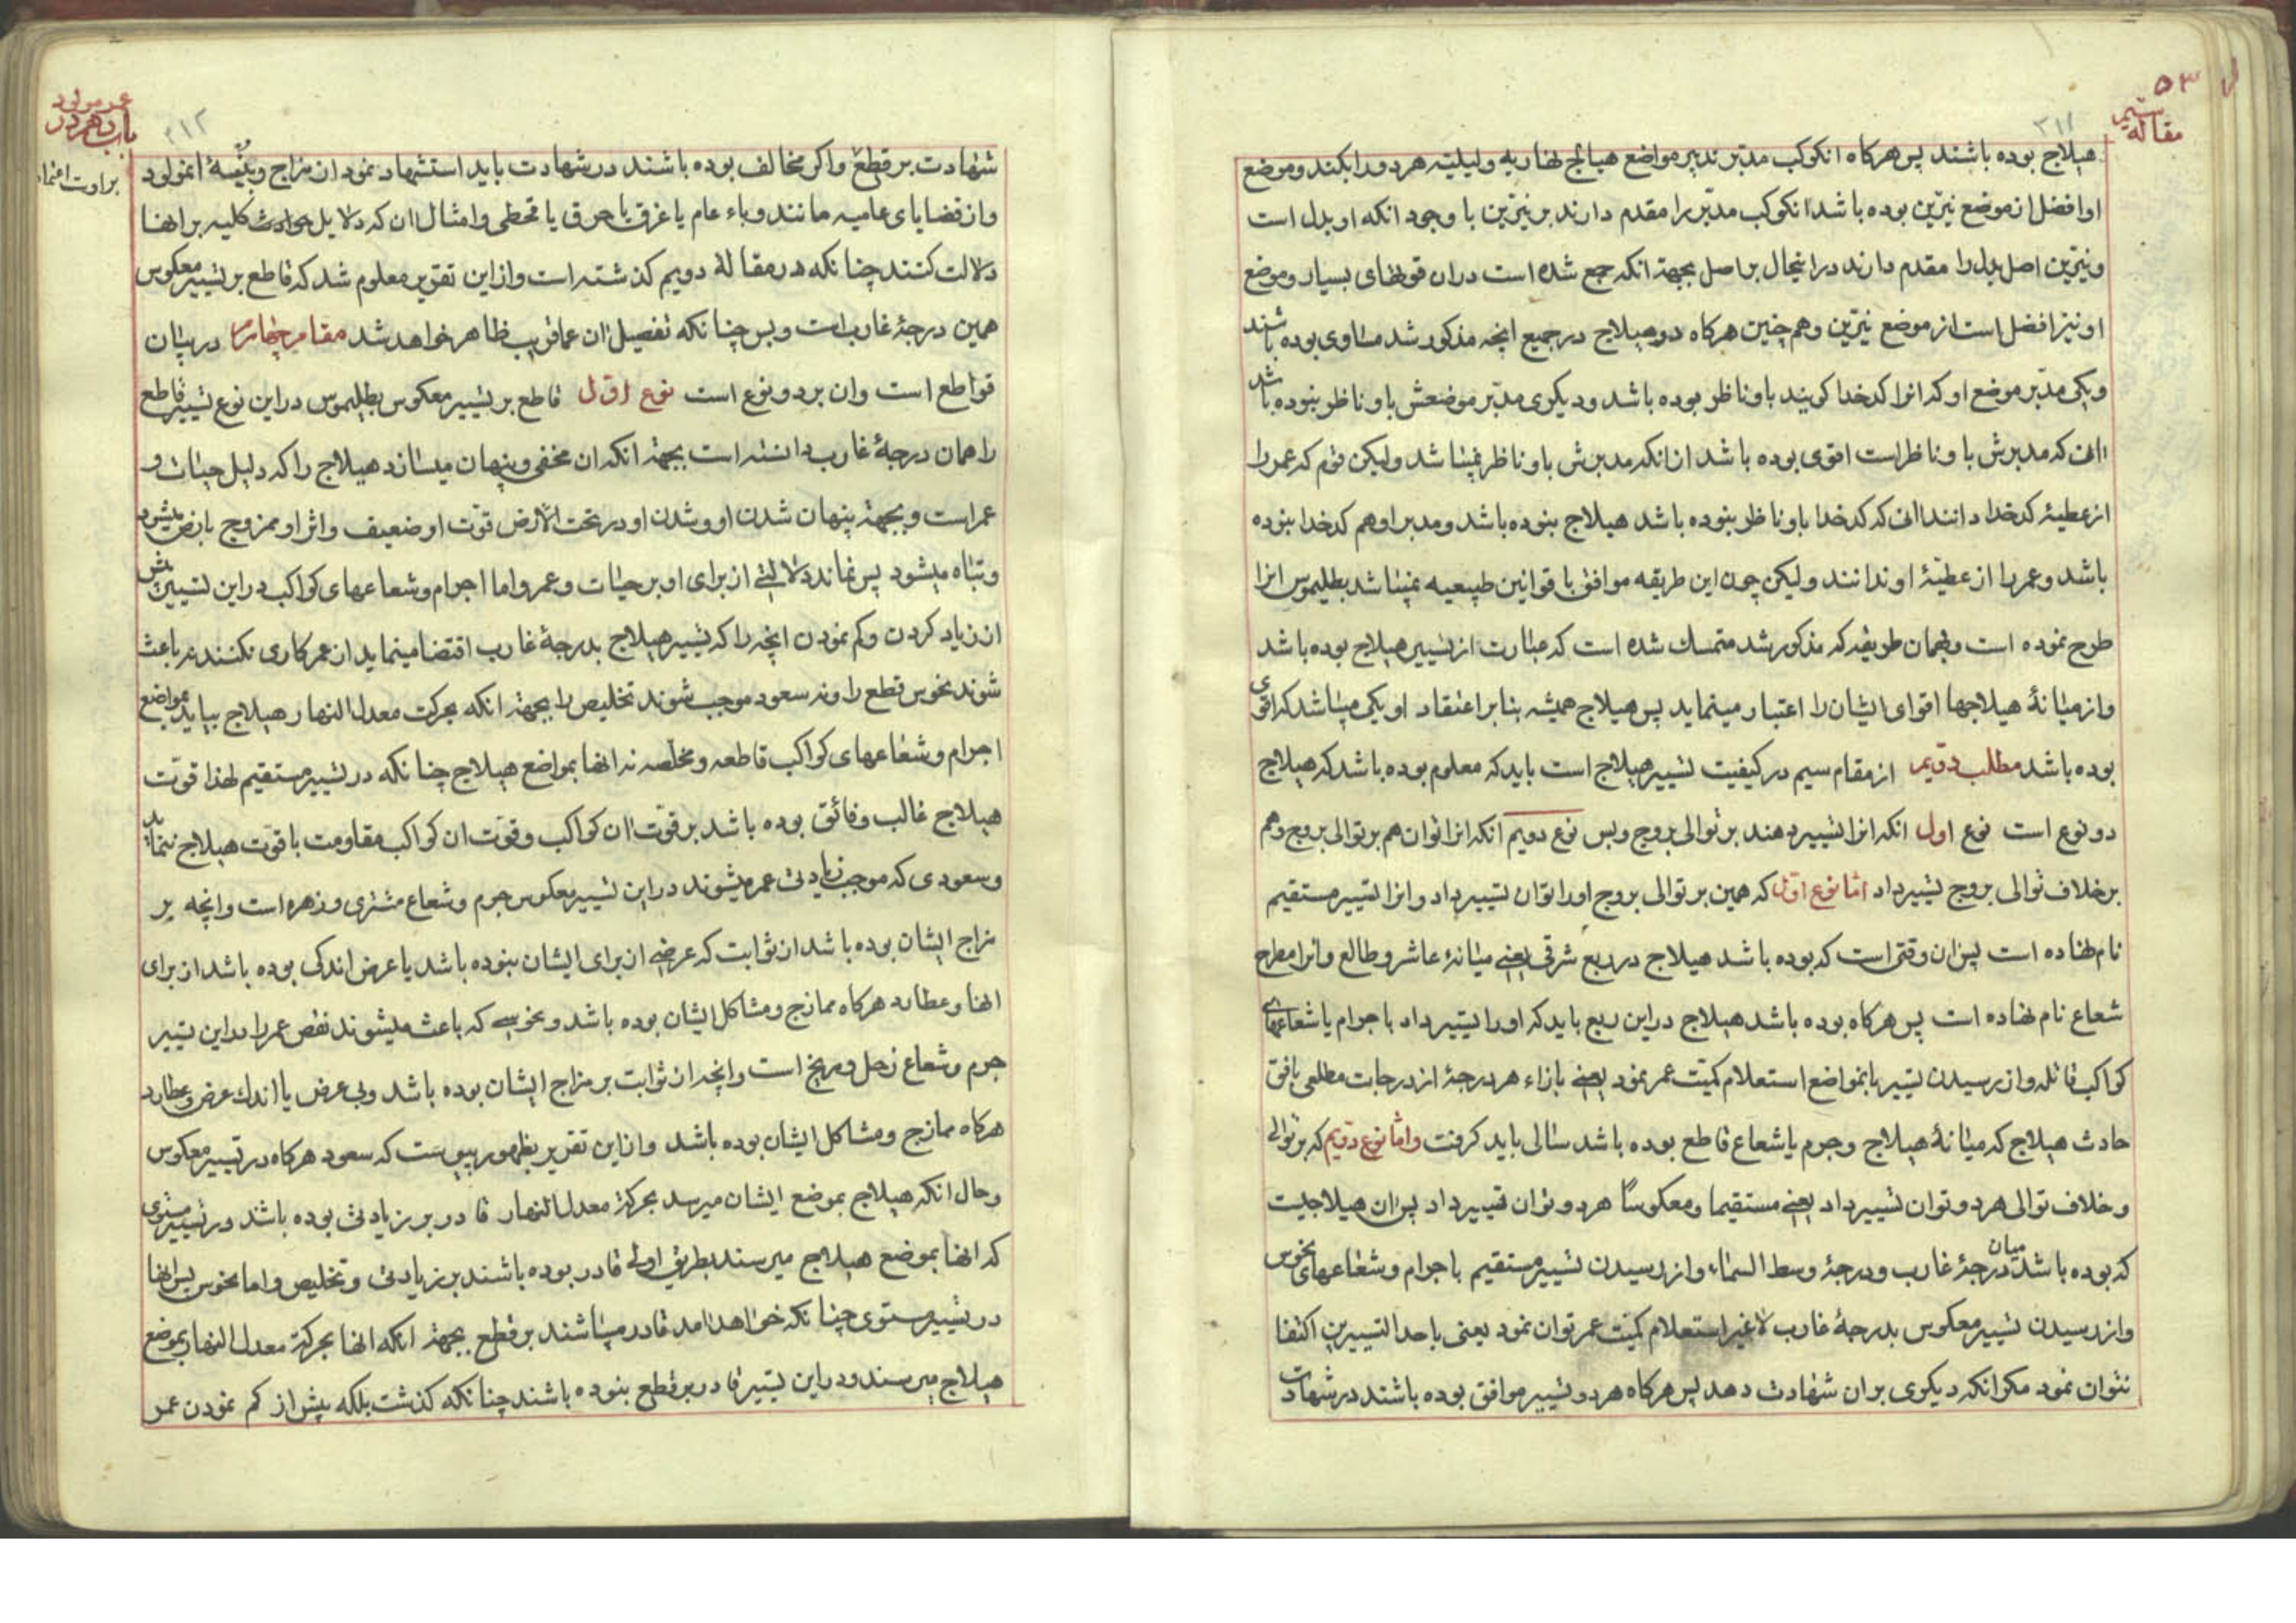 مقاله سیم
۳۱۱
هیلاج بوده باشند پس هرکاه انکوکب مدبّر تدبیر مواضع هیالج نهاریه ولیلیّه هر دو را بکند وموضع
او افضل از موضع نیّرین بوده باشد انکوکب مدبّر را مقدم دارند بر نیّرین با وجود انکه او بدل است
ونیّرین اصل بدل را مقدم دارند در اینحال بر اصل بجهة انکه جمع شده است در ان قوتهای بسیار وموضع
او نیز افضل است از موضع نیّرین وهم چنین هرکاه دو هیلاج در جمیع انچه مذکور شد مساوی بوده باشند
ویکی مدبّر موضع او که انرا کدخدا کویند باو ناظر بوده باشد ودیکری مدبّر موضعش باو ناظر بنوده باشد
ان که مدبرش باو ناظر است اقوی بوده باشد از انکه مدبرش باو ناظر نمیباشد ولیکن قوم که عمر را
از عطیهٔ کدخدا دانند ان که کدخدا باو ناظر بنوده باشد هیلاج بنوده باشد ومدبر او هم کدخدا بنوده
باشد وعمر را از عطیّهٔ او ندانند ولیکن چون این طریقه موافق با قوانین طبیعیه نمیباشد بطلیموس انرا
طرح نموده است وبهمان طریقه که مذکور شد متمسک شده است که عبارت از تسییر هیلاج بوده باشد
واز میانهٔ هیلاجها اقوای ایشان را اعتبار مینماید پس هیلاج همیشه بنا بر اعتقاد او یکی میباشد که اقوی
بوده باشد مطلب دویم از مقام سیم در کیفیت تسییر هیلاج است باید که معلوم بوده باشد که هیلاج
دو نوع است نوع اول انکه انرا تسییر دهند بر توالی بروج وبس نوع دویم انکه انرا توان هم بر توالی بروج وهم
بر خلاف توالی بروج تسییر داد امّا نوع اوّل که همین بر توالی بروج او را توان تسییر داد وانرا تسییر مستقیم
نام نهاده است پس ان وقتی است که بوده باشد هیلاج در ربع شرقی یعنی میانهٔ عاشر وطالع وانرا مطرح
شعاع نام نهاده است پس هرکاه بوده باشد هیلاج در این ربع باید که او را تسییر داد با جرام یا شعاعهای
کواکب قاتله واز رسیدن تسییر بانمواضع استعلام کمیّت عمر نمود یعنی بازاء هر درجهٔ از درجات مطلعی بافق
حادث هیلاج که میانهٔ هیلاج وجرم یا شعاع قاطع بوده باشد سالی باید کرفت وامّا نوع دویم که بر توالی
وخلاف توالی هر دو توان تسییر داد یعنی مستقیما ومعکوسًا هر دو توان تسییر داد پس ان هیلاجیست
که بوده باشد میان درجهٔ غارب ودرجهٔ وسط السّماء واز رسیدن تسییر مستقیم با جرام وشعاعهای نحوس
واز رسیدن تسییر معکوس بدرجهٔ غارب لا غیر استعلام کمیّت عمر توان نمود یعنی باحد التسییرین اکتفا
نتوان نمود مکر انکه دیکری بر ان شهادت دهد پس هرکاه هر دو تسییر موافق بوده باشند در شهادت
باب دهم در
عمر مولود
۳۱۲
شهادت بر قطع واکر مخالف بوده باشند در شهادت باید استشهاد نمود از مزاج وبنیهٔ انمولود
واز قضایای عامیه مانند وباء عام یا غرق یا حرق یا قحطی وامثال ان که دلایل حوادث کلیه بر انها
دلالت کنند چنانکه در مقالهٔ دویم کذشته است واز این تقریر معلوم شد که قاطع بر تسییر معکوس
همین درجهٔ غارب است وبس چنانکه تفصیل ان عماقریب ظاهر خواهد شد مقام چهارم در بیان
قواطع است وان بر دو نوع است نوع اوّل قاطع بر تسییر معکوس بطلیموس در این نوع تسییر قاطع
را همان درجهٔ غارب دانسته است بجهة انکه ان مخفی وپنهان میسازد هیلاج را که دلیل حیات و
عمر است وبجهة پنهان شدن او وشدن او در تحت الارض قوّت او ضعیف واثر او ممزوج بارض میشود
وتباه میشود پس نماند دلالتی از برای او بر حیات وعمر واما اجرام وشعاعهای کواکب در این تسییر بیش
از زیاد کردن وکم نمودن انچه را که تسییر هیلاج بدرجهٔ غارب اقتضا مینماید از عمر کاری نکنند نه باعث
شوند نحوس قطع را ونه سعود موجب شوند تخلیص را بجهة انکه بحرکت معدل النهار هیلاج بیاید بمواضع
اجرام وشعاعهای کواکب قاطعه ومخلّصه نه انها بمواضع هیلاج چنانکه در تسییر مستقیم لهذا قوّت
هیلاج غالب وفائق بوده باشد بر قوّت ان کواکب وقوّت ان کواکب مقاومت با قوّت هیلاج ننماید
وسعودی که موجب زیادتی عمر میشوند در این تسییر معکوس جرم وشعاع مشتری وزهره است وانچه بر
مزاج ایشان بوده باشد از ثوابت که عرضی از برای ایشان بنوده باشد یا عرض اندکی بوده باشد از برای
انها وعطارد هرکاه ممازج ومشاکل ایشان بوده باشد ونحوسی که باعث میشوند نقص عمر را در این تسییر
جرم وشعاع زحل ومریخ است وانچه از ثوابت بر مزاج ایشان بوده باشد وبی عرض یا اندک عرض وعطارد
هرکاه ممازج ومشاکل ایشان بوده باشد واز این تقریر بظهور پیوست که سعود هرکاه در تسییر معکوس
وحال انکه هیلاج بموضع ایشان میرسد بحرکة معدل النهار قادر بر زیادتی بوده باشد در تسییر مستوی
که انها بموضع هیلاج میرسند بطریق اولی قادر بوده باشند بر زیادتی وتخلیص واما نحوس پس انها
در تسییر مستوی چنانکه خواهد امد قادر میباشند بر قطع بجهة انکه انها بحرکة معدل النهار بموضع
هیلاج میرسند ودر این تسییر قادر بر قطع بنوده باشند چنانکه کذشت بلکه بیش از کم نمودن عمر